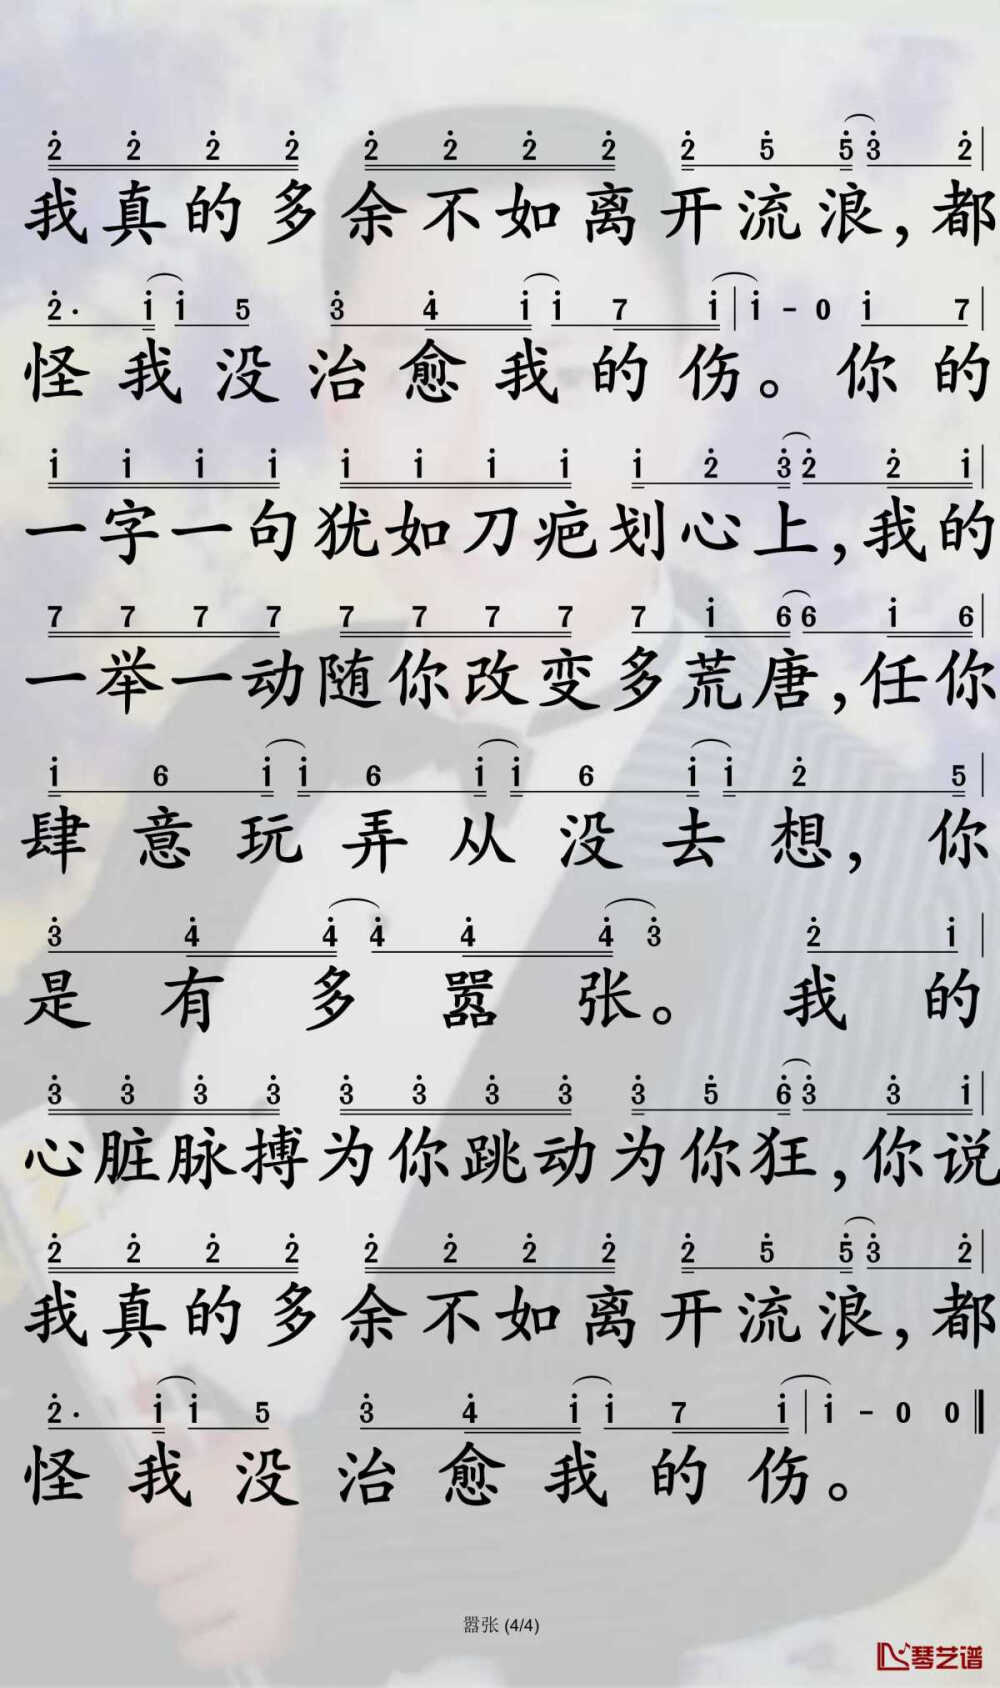 2̇ 2̇ 2̇ 2̇ 2̇ 2̇ 2̇ 2̇ 2̇ 5̇ 5̇ 3̇ 2̇ |
我真的多余不如离开流浪，都
2̇· 1̇ 1̇ 5 3̇ 4̇ 1̇ 1̇ 7 1̇ | 1̇ - 0 1̇ 7
怪我没治愈我的伤。你的
1̇ 1̇ 1̇ 1̇ 1̇ 1̇ 1̇ 1̇ 1̇ 2̇ 3̇ 2̇ 2̇ 1̇ |
一字一句犹如刀疤划心上，我的
7 7 7 7 7 7 7 7 7 1̇ 6 6 1̇ 6 |
一举一动随你改变多荒唐，任你
1̇ 6 1̇ 1̇ 6 1̇ 1̇ 6 1̇ 1̇ 2̇ 5 |
肆意玩弄从没去想，你
3̇ 4̇ 4̇ 4̇ 4̇ 4̇ 3̇ 2̇ 1̇ |
是有多嚣张。我的
3̇ 3̇ 3̇ 3̇ 3̇ 3̇ 3̇ 3̇ 3̇ 5̇ 6̇ 3̇ 3̇ 1̇ |
心脏脉搏为你跳动为你狂，你说
2̇ 2̇ 2̇ 2̇ 2̇ 2̇ 2̇ 2̇ 2̇ 5̇ 5̇ 3̇ 2̇ |
我真的多余不如离开流浪，都
2̇· 1̇ 1̇ 5 3̇ 4̇ 1̇ 1̇ 7 1̇ | 1̇ - 0 0
怪我没治愈我的伤。
嚣张 (4/4)
琴艺谱